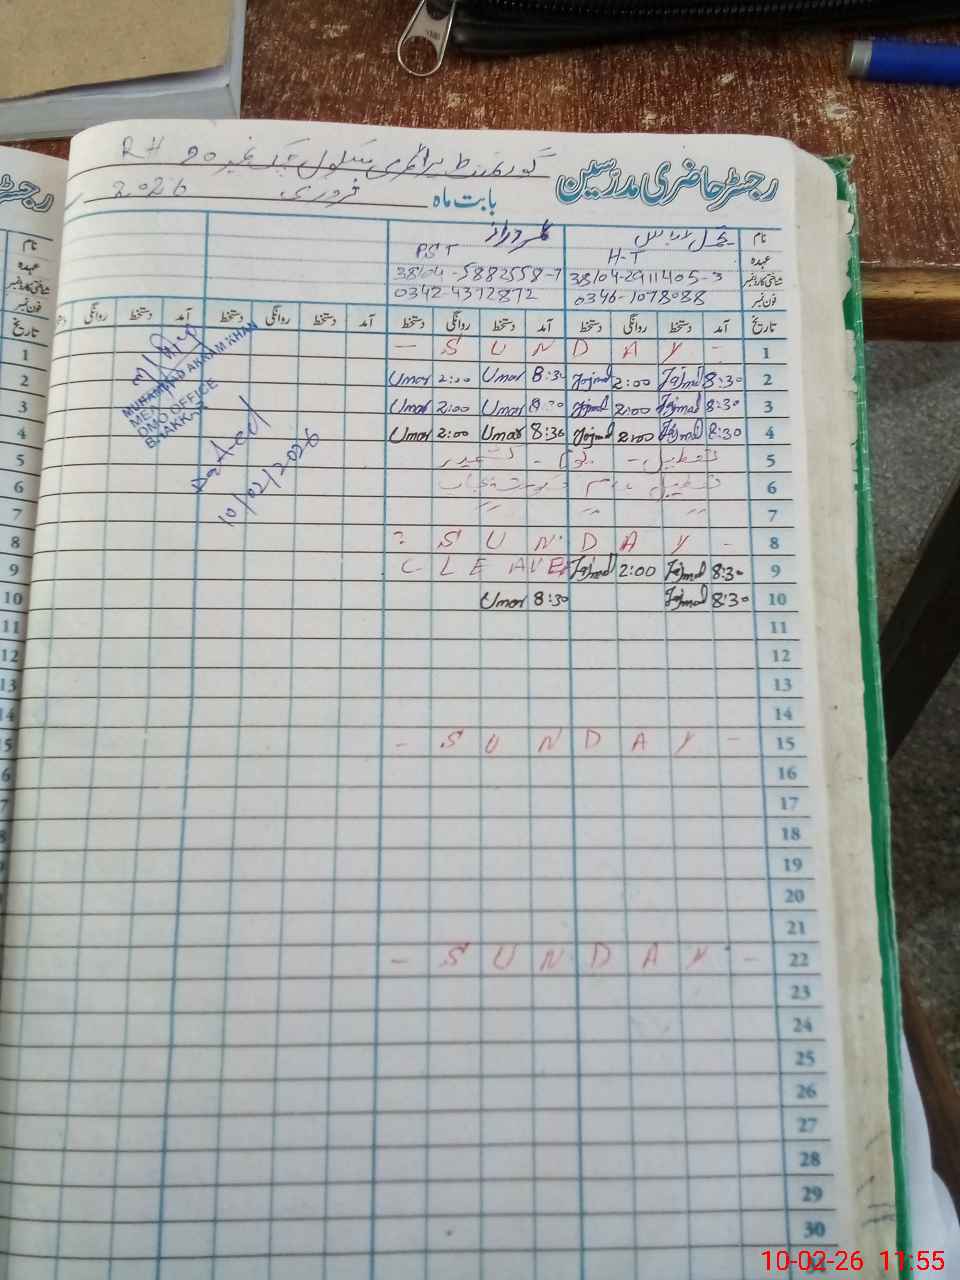 گورنمنٹ پرائمری سکول چک نمبر 20 RH
رجسٹر حاضری مدرسین
بابت ماہ فروری 2026
نام
عہدہ H-T PST
شناختی کارڈ نمبر 38104-2911405-3 38104-5882558-7
فون نمبر 0346-1078088 0342-4372872
تاریخ آمد دستخط روانگی دستخط آمد دستخط روانگی دستخط آمد دستخط روانگی دستخط آمد دستخط روانگی
1 - S U N D A Y -
2 8:30 Jajmal 2:00 Jajmal 8:30 Umar 2:00 Umar
3 8:30 Jajmal 2:00 Jajmal 8:30 Umar 2:00 Umar
4 8:30 Jajmal 2:00 Jajmal 8:30 Umar 2:00 Umar
5 تعطیل - یوم - کشمیر
6 تعطیل
7 " " "
8 S U N D A Y -
9 8:30 Jajmal 2:00 Jajmal C LEAVE
10 8:30 Jajmal 8:30 Umar
11
12
13
14
15 - S U N D A Y -
16
17
18
19
20
21
22 - S U N D A Y -
23
24
25
26
27
28
29
30
MUHAMMAD AKRAM KHAN
MEA
DMO OFFICE
BHAKKAR
Dated
10/02/2026
10-02-26 11:55